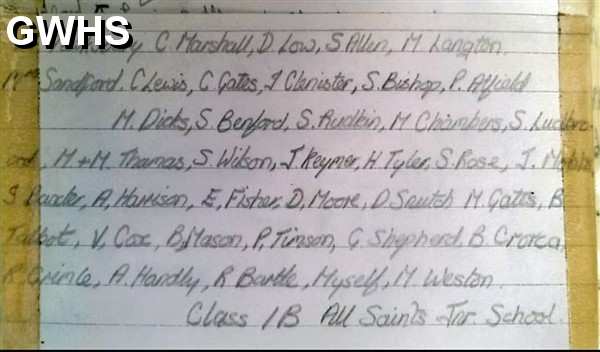 GWHS
C. Marshall, D. Low, S Allen, M. Langton.
Mrs Sandford. C Lewis, C Gates, J Clenister, S. Bishop, P. Alfield
M. Dicks, S. Benford, S. Rudkin, M Chambers, S.
M + M. Thomas, S. Wilson, J. Keymer, H Tyler, S. Rose, J.
A, Harrison, E, Fisher, D, Moore, D. M. Gates, B
Talbot, V, Cox, B, Mason, P, Timson, G Shepherd. B.
A. Handly, R Bartle, Myself, M. Weston.
Class 1B All Saints Jnr School.